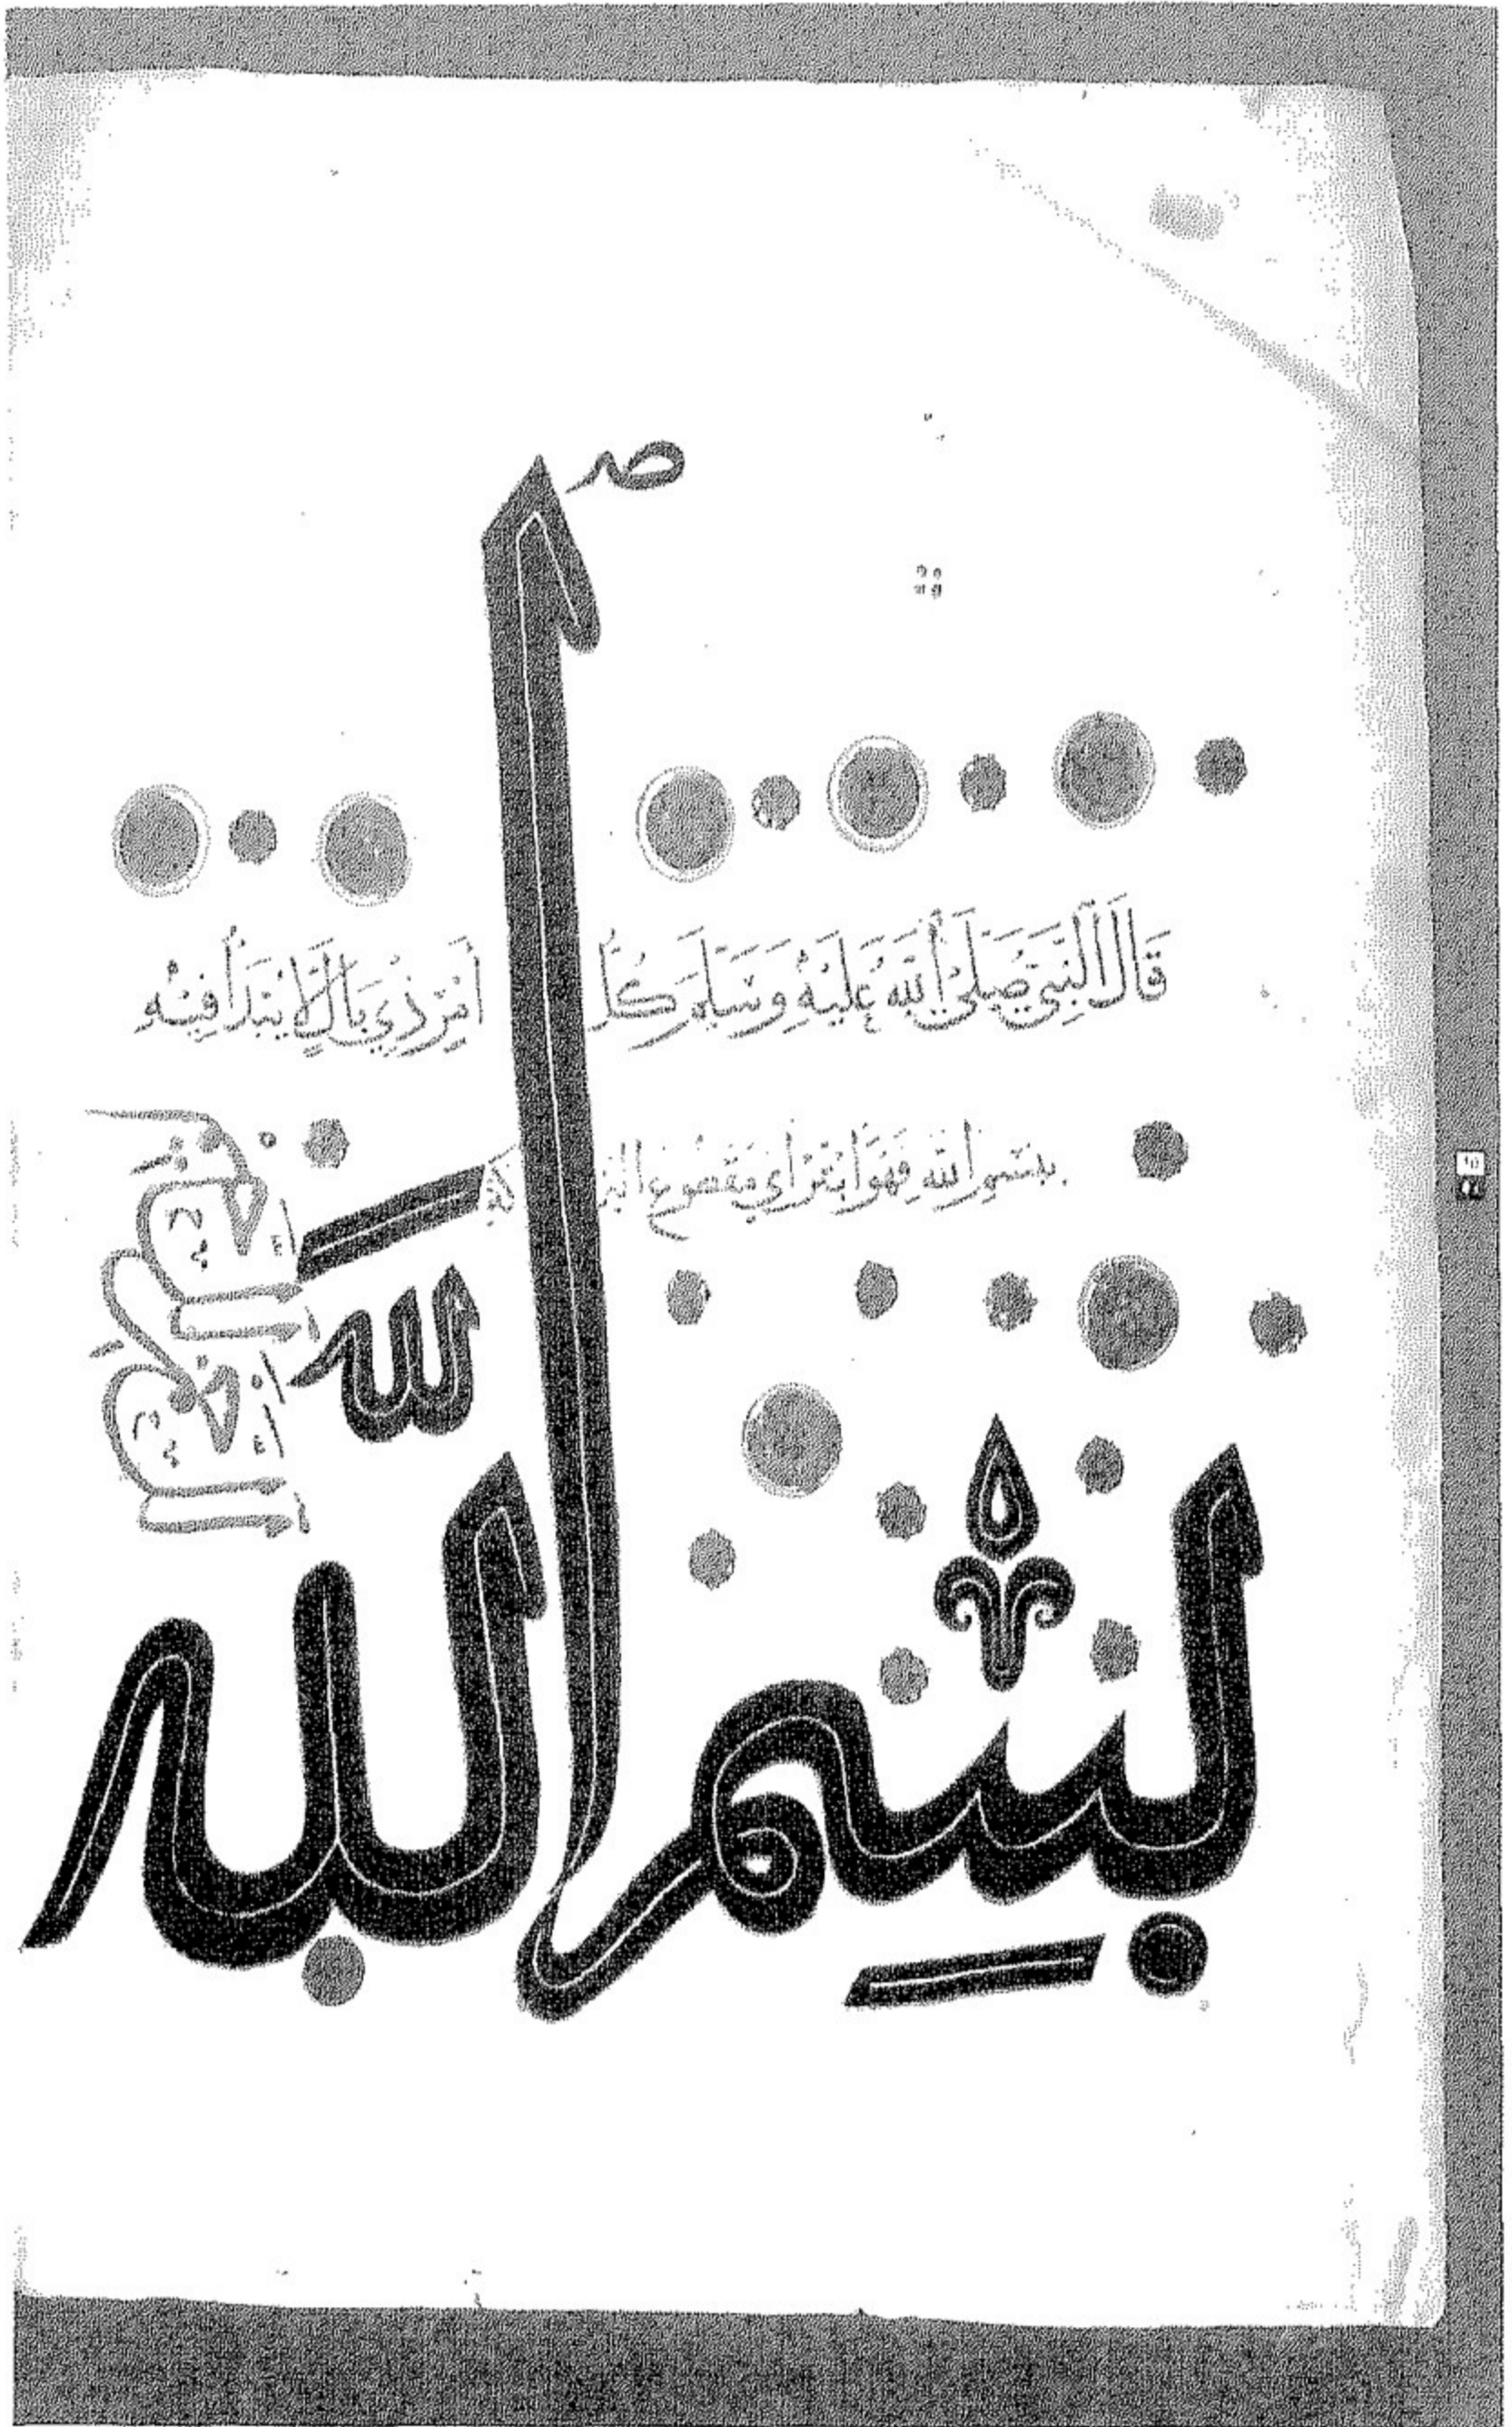 قَالَ النَّبِيُّ صَلَّى اللهُ عَلَيْهِ وَسَلَّمَ كُلُّ أَمْرٍ ذِي بَالٍ لَا يُبْدَأُ فِيْهِ
بِبِسْمِ اللهِ فَهُوَ أَبْتَرُ أَي مَقْطُوعُ الْبَرَكَةِ
بِسْمِ اللَّه